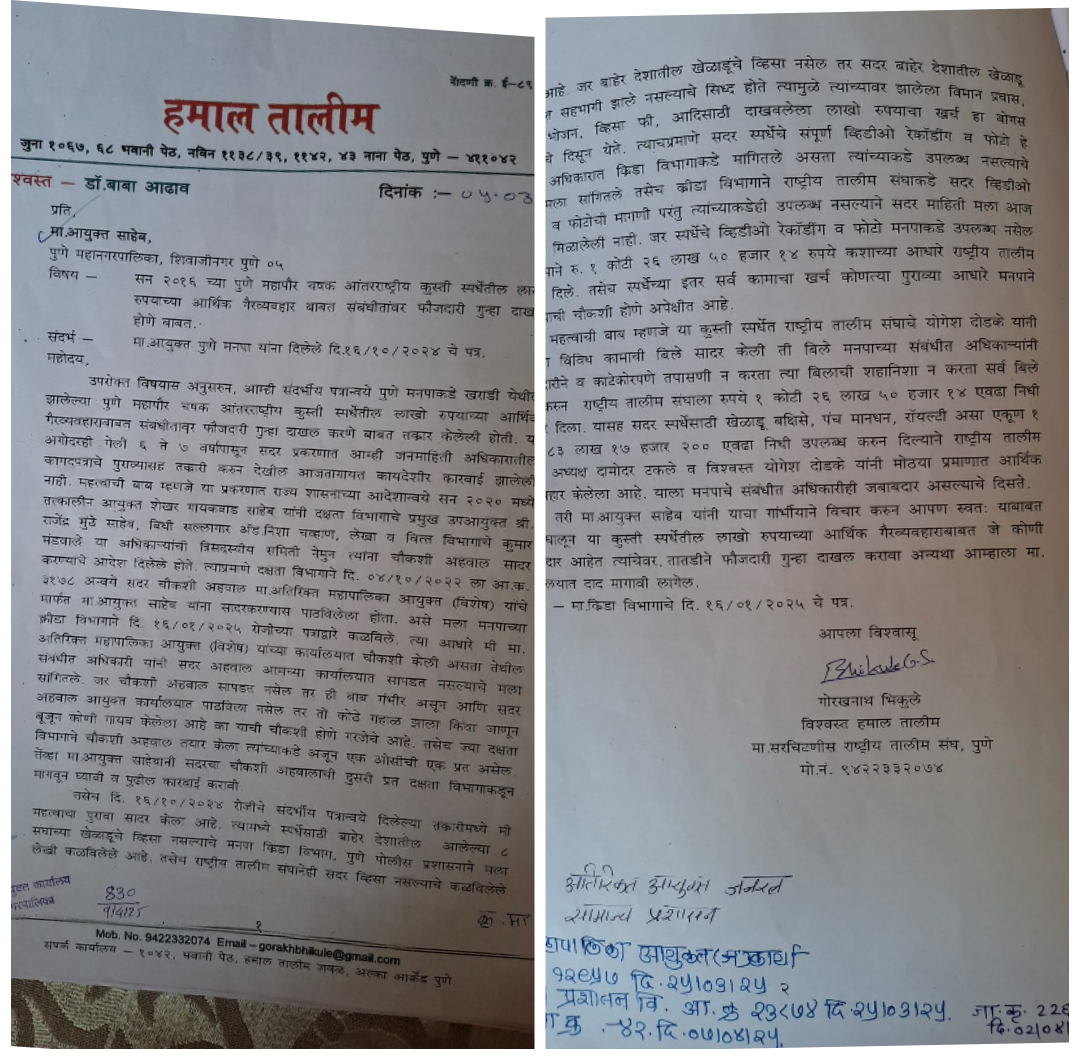 नोंदणी क्र. ई–८९
हमाल तालीम
जुना १०६७, ६८ भवानी पेठ, नविन ११३८/३९, ११४२, ४३ नाना पेठ, पुणे – ४११०४२
श्वस्त – डॉ.बाबा आढाव
दिनांक :– ०५.०३
प्रति,
मा.आयुक्त साहेब,
पुणे महानगरपालिका, शिवाजीनगर पुणे ०५
विषय – सन २०१६ च्या पुणे महापौर चषक आंतरराष्ट्रीय कुस्ती स्पर्धेतील ला
रुपयाच्या आर्थिक गैरव्यवहार बाबत संबंधीतांवर फौजदारी गुन्हा दाख
होणे बाबत.
संदर्भ – मा.आयुक्त पुणे मनपा यांना दिलेले दि.१६/१०/२०२४ चे पत्र.
महोदय,
उपरोक्त विषयास अनुसरुन, आम्ही संदर्भीय पत्रान्वये पुणे मनपाकडे खराडी येथी
झालेल्या पुणे महापौर चषक आंतरराष्ट्रीय कुस्ती स्पर्धेतील लाखो रुपयाच्या आर्थि
गैरव्यवहाराबाबत संबंधीतांवर फौजदारी गुन्हा दाखल करणे बाबत तक्रार केलेली होती. य
अगोदरही गेली ६ ते ७ वर्षापासून सदर प्रकरणात आम्ही जनमाहिती अधिकारातील
कागदपत्राचे पुराव्यासह तक्रारी करुन देखील आजतागायत कायदेशीर कारवाई झालेली
नाही. महत्वाची बाब म्हणजे या प्रकरणात राज्य शासनाच्या आदेशान्वये सन २०२० मध्ये
तत्कालीन आयुक्त शेखर गायकवाड साहेब यांनी दक्षता विभागाचे प्रमुख उपआयुक्त श्री.
राजेंद्र मुठे साहेब, विधी सल्लागार अॅड.निशा चव्हाण, लेखा व वित्त विभागाचे कुमार
मंडवाले या अधिकाऱ्यांची त्रिसदस्यीय समिती नेमुन त्यांना चौकशी अहवाल सादर
करण्याचे आदेश दिलेले होते. त्याप्रमाणे दक्षता विभागाने दि. ०४/१०/२०२२ ला आ.क.
३१७८ अन्वये सदर चौकशी अहवाल मा.अतिरिक्त महापालिका आयुक्त (विशेष) यांचे
मार्फत मा.आयुक्त साहेब यांना सादरकरण्यास पाठविलेला होता. असे मला मनपाच्या
क्रीडा विभागाने दि. १६/०१/२०२५ रोजीच्या पत्राद्वारे कळविले. त्या आधारे मी मा.
अतिरिक्त महापालिका आयुक्त (विशेष) यांच्या कार्यालयात चौकशी केली असता तेथील
संबंधीत अधिकारी यांनी सदर अहवाल आमच्या कार्यालयात सापडत नसल्याचे मला
सांगितले. जर चौकशी अहवाल सापडत नसेल तर ही बाब गंभीर असून आणि सदर
अहवाल आयुक्त कार्यालयात पाठविला नसेल तर तो कोठे गहाळ झाला किंवा जाणून
बूजून कोणी गायब केलेला आहे का याची चौकशी होणे गरजेचे आहे. तसेच ज्या दक्षता
विभागाने चौकशी अहवाल तयार केला त्यांच्याकडे अजून एक ओसीची एक प्रत असेल.
तेंव्हा मा.आयुक्त साहेबांनी सदरचा चौकशी अहवालाची दुसरी प्रत दक्षता विभागाकडून
मागवून घ्यावी व पुढील कारवाई करावी
तसेच दि. १६/१०/२०२४ रोजीचे संदर्भीय पत्रान्वये दिलेल्या तक्रारीमध्ये मी
महत्वाचा पुरावा सादर केला आहे. त्यामध्ये स्पर्धेसाठी बाहेर देशातील आलेल्या ८
संघांच्या खेळाडूंचे व्हिसा नसल्याचे मनपा क्रिडा विभाग, पुणे पोलीस प्रशासनाने मला
लेखी कळविलेले आहे. तसेच राष्ट्रीय तालीम संघानेही सदर व्हिसा नसल्याचे कळविलेले
युक्त कार्यालय
830
१/4/25
१
कृ.मा
Mob. No. 9422332074 Email – gorakhbhikule@gmail.com
संपर्क कार्यालय – १०४२, भवानी पेठ, हमाल तालीम जवळ, अल्का आर्केड पुणे
आहे. जर बाहेर देशातील खेळाडूंचे व्हिसा नसेल तर सदर बाहेर देशातील खेळाडू
त सहभागी झाले नसल्याचे सिध्द होते त्यामुळे त्यांच्यावर झालेला विमान प्रवास,
भोजन, व्हिसा फी, आदिसाठी दाखवलेला लाखो रुपयाचा खर्च हा बोगस
चे दिसून येते. त्याचप्रमाणे सदर स्पर्धेचे संपूर्ण व्हिडीओ रेकॉडींग व फोटो हे
अधिकारात क्रिडा विभागाकडे मागितले असता त्यांच्याकडे उपलब्ध नसल्याचे
मला सांगितले तसेच क्रीडा विभागाने राष्ट्रीय तालीम संघाकडे सदर व्हिडीओ
व फोटोची मागणी परंतु त्यांच्याकडेही उपलब्ध नसल्याने सदर माहिती मला आज
मिळालेली नाही. जर स्पर्धेचे व्हिडीओ रेकॉर्डींग व फोटो मनपाकडे उपलब्ध नसेल
पाने रु. १ कोटी २६ लाख ५० हजार १४ रुपये कशाच्या आधारे राष्ट्रीय तालीम
दिले. तसेच स्पर्धेच्या इतर सर्व कामाचा खर्च कोणत्या पुराव्या आधारे मनपाने
ाची चौकशी होणे अपेक्षीत आहे.
महत्वाची बाब म्हणजे या कुस्ती स्पर्धेत राष्ट्रीय तालीम संघाचे योगेश दोडके यांनी
विविध कामाची बिले सादर केली ती बिले मनपाच्या संबंधीत अधिकाऱ्यांनी
ारीने व काटेकोरपणे तपासणी न करता त्या बिलाची शहानिशा न करता सर्व बिले
करुन राष्ट्रीय तालीम संघाला रुपये १ कोटी २६ लाख ५० हजार १४ एवढा निधी
दिला. यासह सदर स्पर्धेसाठी खेळाडू बक्षिसे, पंच मानधन, रॉयल्टी असा एकूण १
८३ लाख १७ हजार २०० एवढा निधी उपलब्ध करुन दिल्याने राष्ट्रीय तालीम
अध्यक्ष दामोदर टकले व विश्वस्त योगेश दोडके यांनी मोठया प्रमाणात आर्थिक
हार केलेला आहे. याला मनपाचे संबंधीत अधिकारीही जबाबदार असल्याचे दिसते.
तरी मा.आयुक्त साहेब यांनी याचा गांर्भीयाने विचार करुन आपण स्वतः याबाबत
घालून या कुस्ती स्पर्धेतील लाखो रुपयाच्या आर्थिक गैरव्यवहाराबाबत जे कोणी
दार आहेत त्यांचेवर. तातडीने फौजदारी गुन्हा दाखल करावा अन्यथा आम्हाला मा.
लयात दाद मागावी लागेल.
– मा.क्रिडा विभागाचे दि. १६/०१/२०२५ चे पत्र.
आपला विश्वासू
Bhikule G.S.
गोरखनाथ भिकुले
विश्वस्त हमाल तालीम
मा.सरचिटणीस राष्ट्रीय तालीम संघ, पुणे
मो.नं. ९४२२३३२०७४
अतिरिक्त आयुक्त जनरल
सामान्य प्रशासन
हापालिका आयुक्त(
१२९५७ दि.२५/०३/२५ २
प्रशासन वि. आ.क्र २३८७४ दि.२५/०३/२५. जा.क्र. 226
क्र -४२.दि.०७/०४/२५. दि.०२/०४/